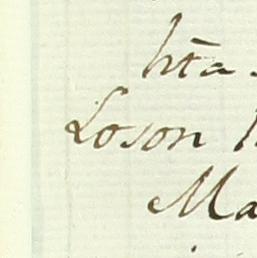 hta
Loson
Ma